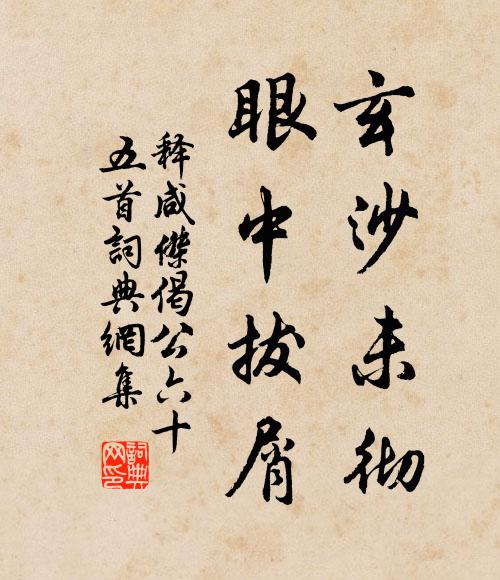 玄沙未彻
眼中拔屑
释咸傑偈公六十
五首詞典網集
詞典
网印